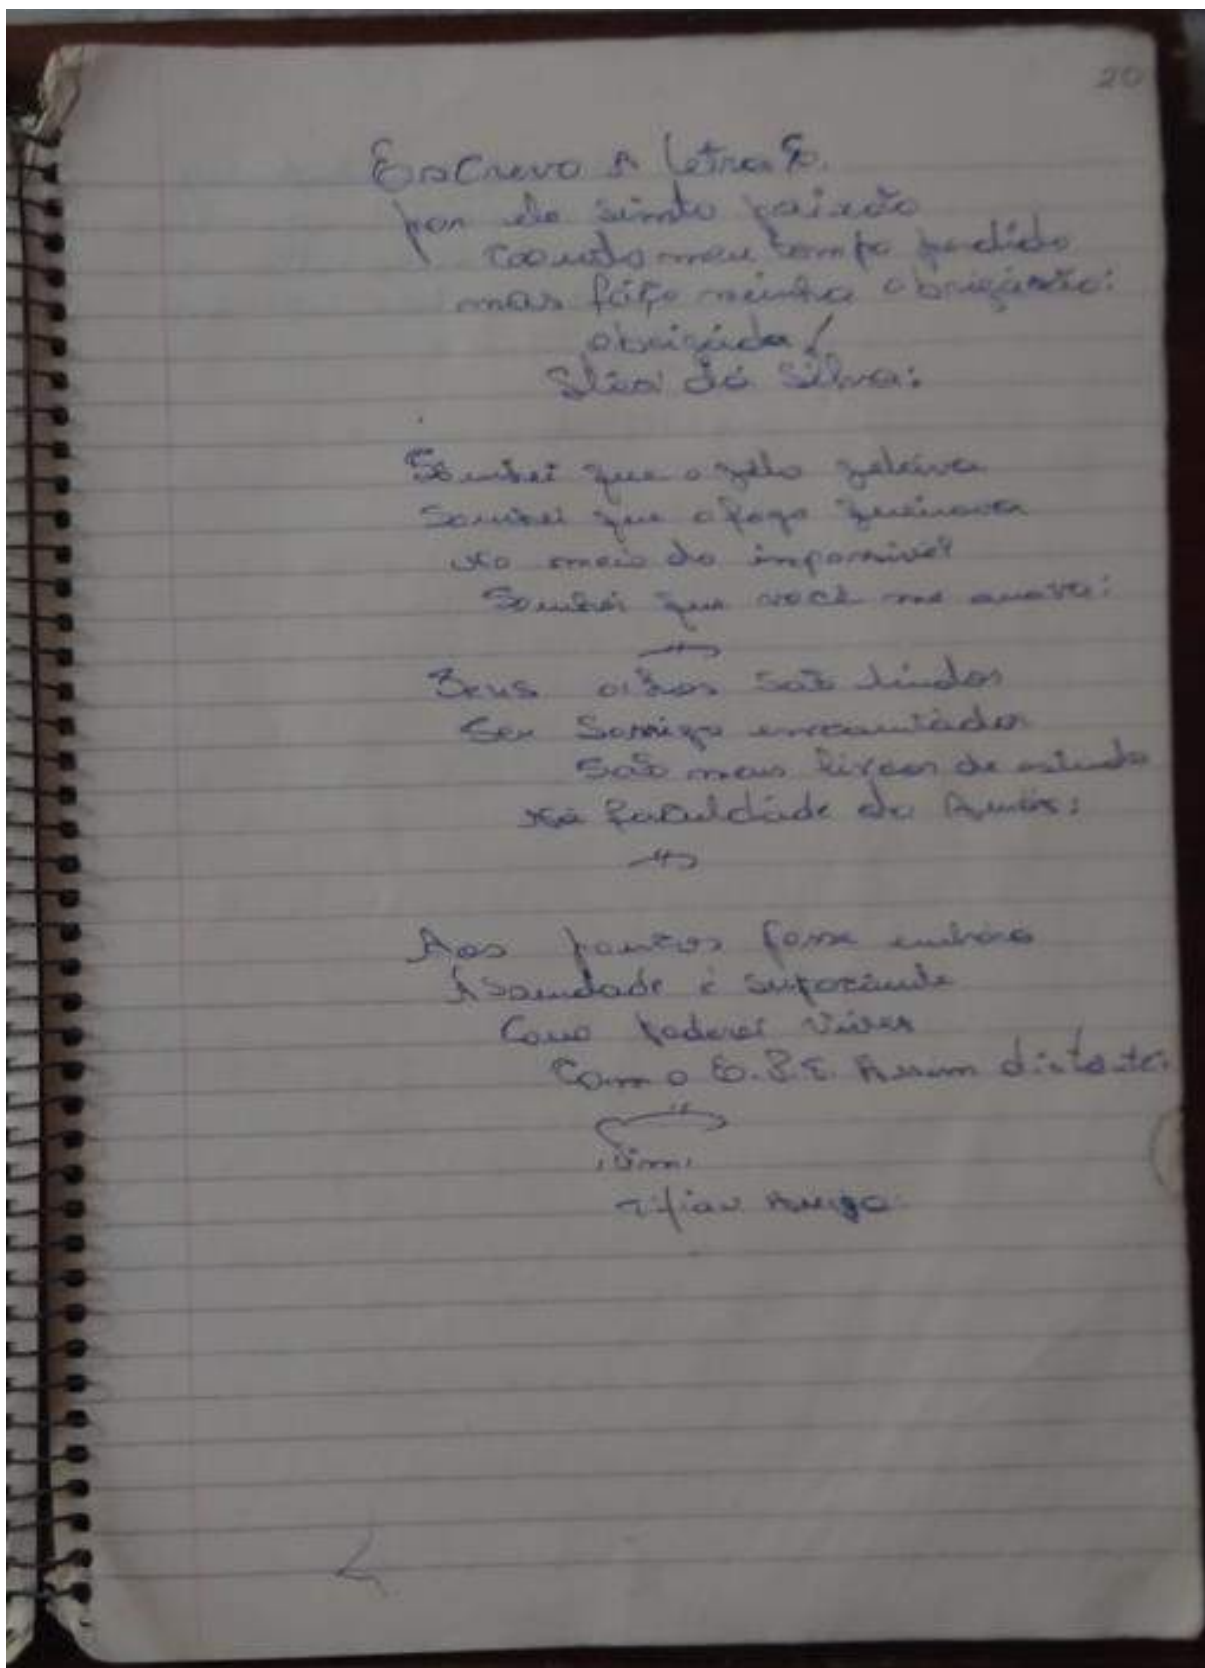 20
Escrevo A letra E.
por ele sinto paixão
meu tempo perdido
mas faço minha obrigasão:
obrigada!
da Silva:
Sonhei que o gelo gelava
Sonhei que o fogo queimava
no meio do impossivel
Sonhei que você me amava:
Seus olhos são lindos
Seu Sorrizo encantador
São mais de estudo
na faculdade do Amor:
Aos fosse embora
A Saudade é
Como poderei viver
Com o Assim distante:
Fim
Amigo